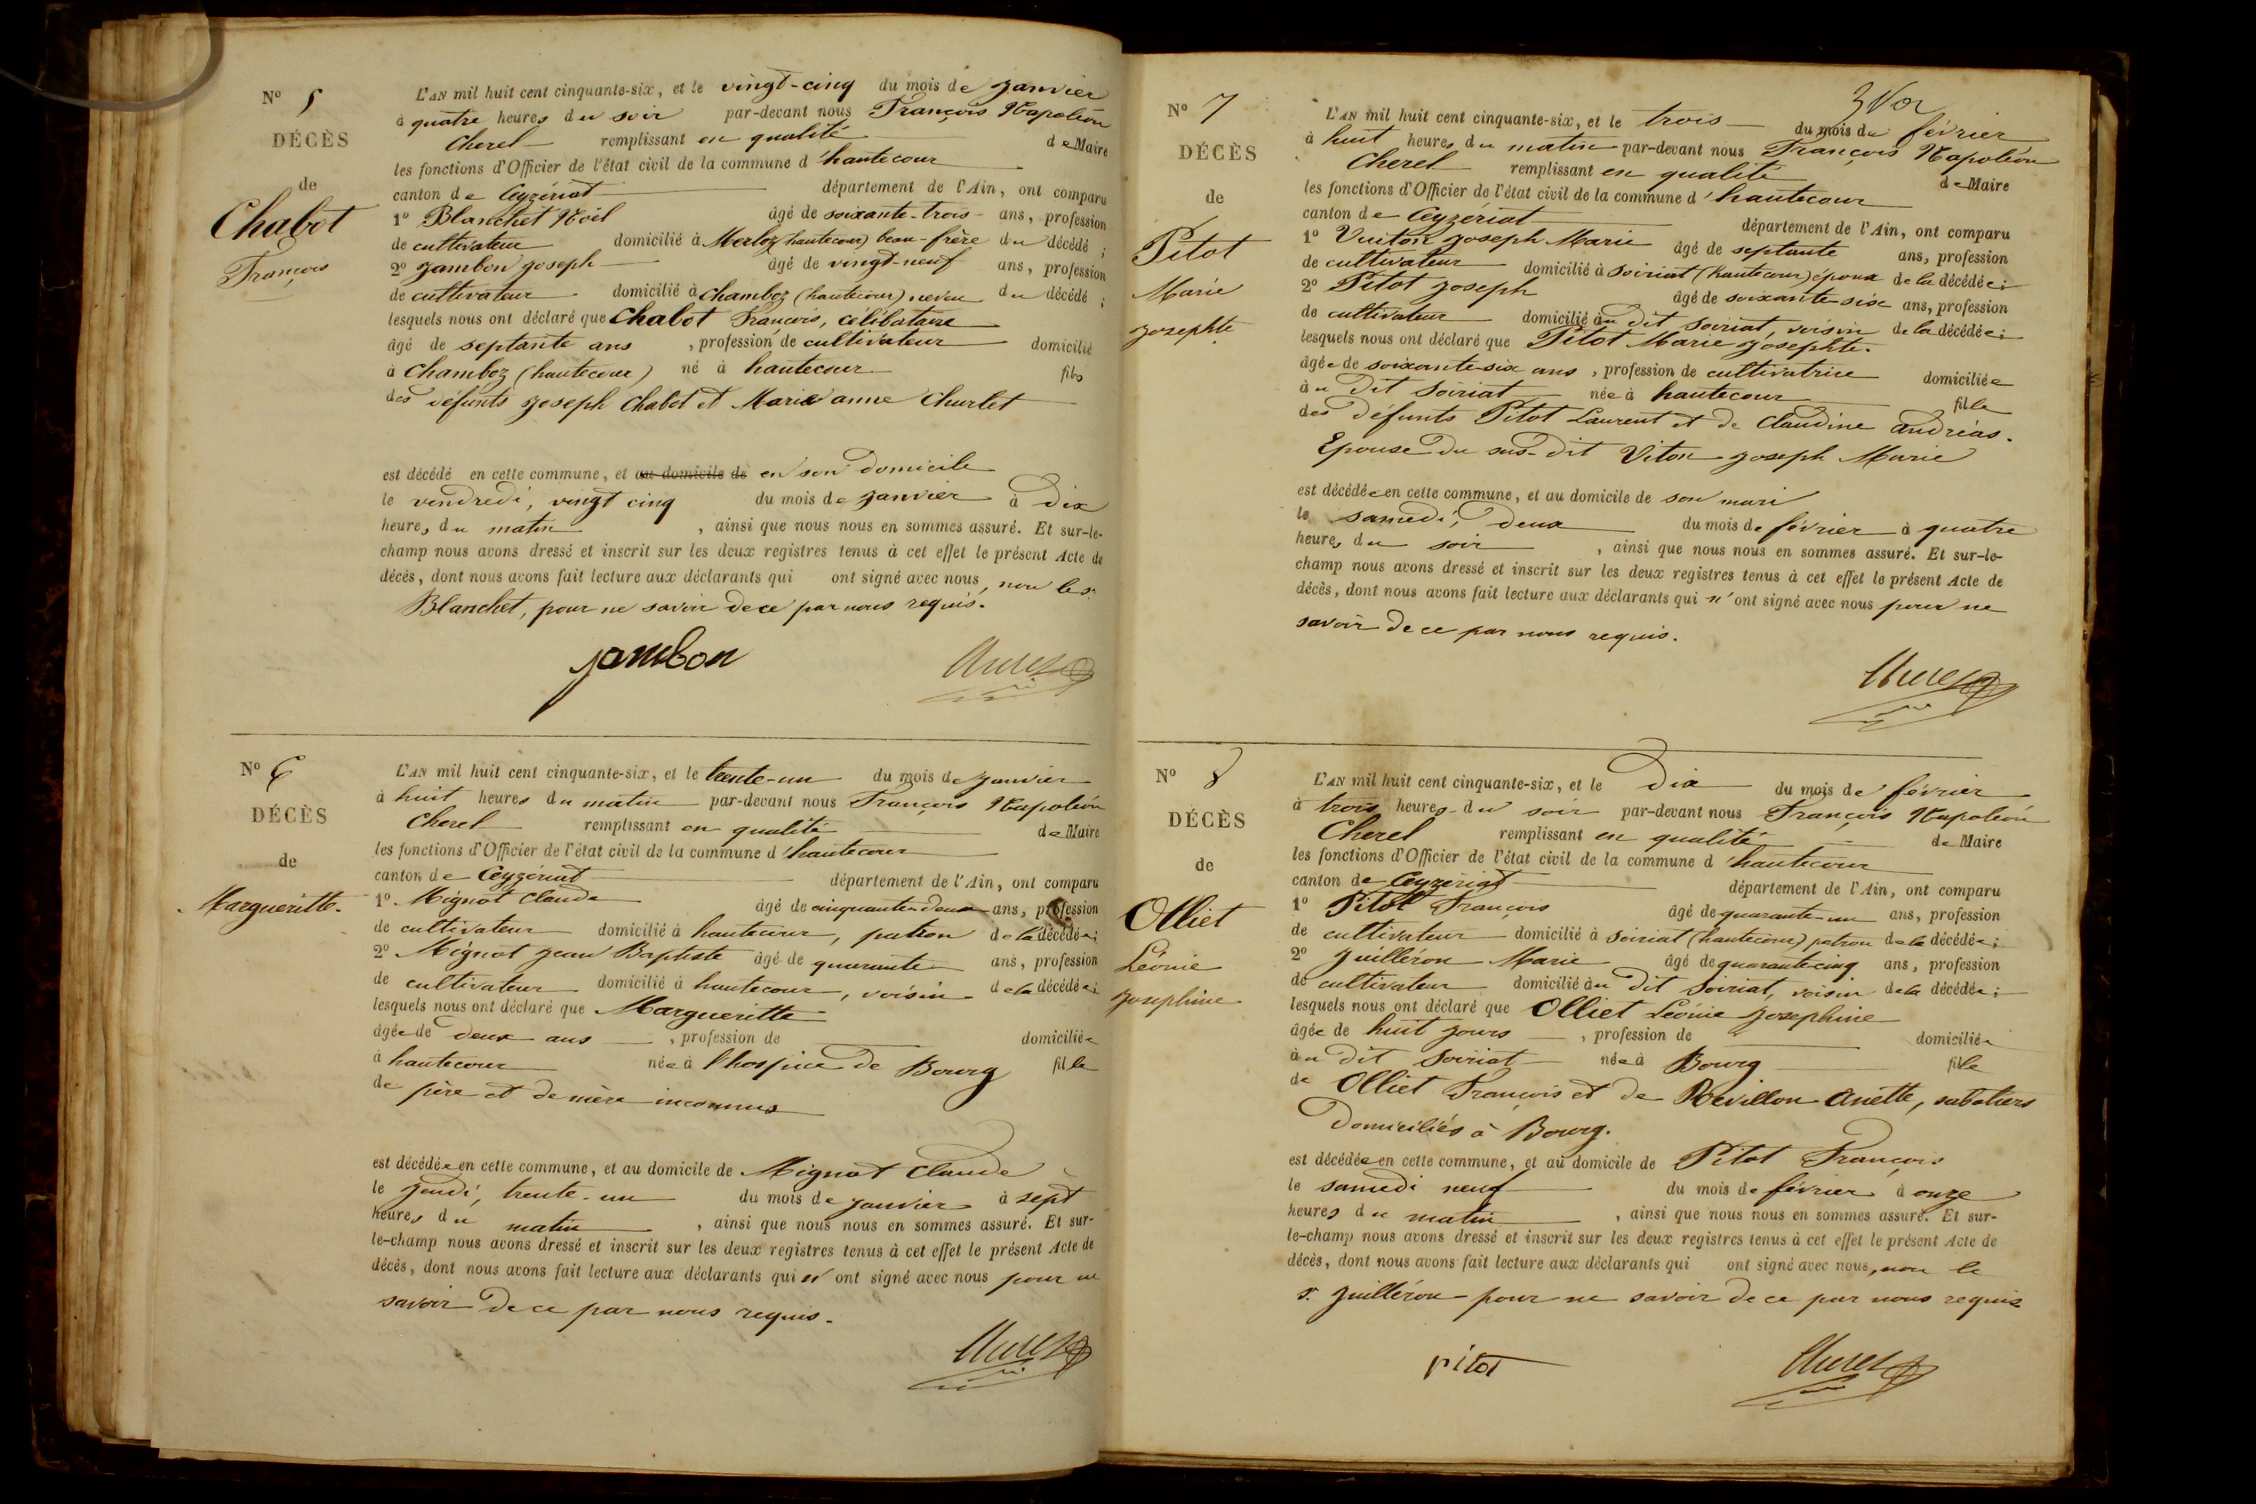 N° 5
DÉCÈS
de
Chabot
François
L'AN mil huit cent cinquante-six, et le vingt-cinq du mois de janvier
à quatre heures du soir par-devant nous François Napoléon
Cherel remplissant en qualité de Maire
les fonctions d'Officier de l'état civil de la commune d'hautecour
canton de Ceyzériat département de l'Ain, ont comparu
1° Blanchet Noël âgé de soixante-trois ans, profession
de cultivateur domicilié à Merloz (hautecour) beau-frère du décédé ;
2° Jambon Joseph âgé de vingt-neuf ans, profession
de cultivateur domicilié à Chamboz (hautecour) neveu du décédé ;
lesquels nous ont déclaré que Chabot François, célibataire
âgé de septante ans , profession de cultivateur domicilié
à Chamboz (hautecour) né à hautecour fils
des défunts Joseph Chabot et Marie anne Churlet
est décédé en cette commune, et au domicile de en son domicile
le vendredi, vingt cinq du mois de janvier à dix
heures du matin , ainsi que nous nous en sommes assuré. Et sur-le-
champ nous avons dressé et inscrit sur les deux registres tenus à cet effet le présent Acte de
décès, dont nous avons fait lecture aux déclarants qui ont signé avec nous, non le sr
Blanchet, pour ne savoir de ce par nous requis.
Jambon
Cherel
N° 6
DÉCÈS
de
Margueritte.
L'AN mil huit cent cinquante-six, et le trente-un du mois de janvier
à huit heures du matin par-devant nous François Napoléon
Cherel remplissant en qualité de Maire
les fonctions d'Officier de l'état civil de la commune d'hautecour
canton de Ceyzériat département de l'Ain, ont comparu
1° Mignot Claude âgé de cinquante-deux ans, profession
de cultivateur domicilié à hautecour, patron de la décédée ;
2° Mignot Jean Baptiste âgé de quarante ans, profession
de cultivateur domicilié à hautecour, voisin de la décédée ;
lesquels nous ont déclaré que Margueritte
âgée de deux ans , profession de domiciliée
à hautecour née à l'hospice de Bourg fille
de père et de mère inconnus
est décédée en cette commune, et au domicile de Mignot Claude
le jeudi, trente-un du mois de janvier à sept
heures du matin , ainsi que nous nous en sommes assuré. Et sur-
le-champ nous avons dressé et inscrit sur les deux registres tenus à cet effet le présent Acte de
décès, dont nous avons fait lecture aux déclarants qui n'ont signé avec nous pour ne
savoir de ce par nous requis.
Cherel
N° 7
DÉCÈS
de
Pitot
Marie
Josephte
L'AN mil huit cent cinquante-six, et le trois du mois de février
à huit heures du matin par-devant nous François Napoléon
Cherel remplissant en qualité de Maire
les fonctions d'Officier de l'état civil de la commune d'hautecour
canton de Ceyzériat département de l'Ain, ont comparu
1° Vuiton Joseph Marie âgé de septante ans, profession
de cultivateur domicilié à Soiriat (hautecour) époux de la décédée ;
2° Pitot Joseph âgé de soixante-six ans, profession
de cultivateur domicilié au dit Soiriat, voisin de la décédée ;
lesquels nous ont déclaré que Pitot Marie Josephte.
âgée de soixante-six ans , profession de cultivatrice domiciliée
au dit Soiriat née à hautecour fille
des défunts Pitot Laurent et de Claudine andréas.
Epouse du sus-dit Viton Joseph Marie
est décédée en cette commune, et au domicile de son mari
le samedi, deux du mois de février à quatre
heures du soir , ainsi que nous nous en sommes assuré. Et sur-le-
champ nous avons dressé et inscrit sur les deux registres tenus à cet effet le présent Acte de
décès, dont nous avons fait lecture aux déclarants qui n'ont signé avec nous pour ne
savoir de ce par nous requis.
Cherel
N° 8
DÉCÈS
de
Olliet
Léonie
Josephine
L'AN mil huit cent cinquante-six, et le dix du mois de février
à trois heures du soir par-devant nous François Napoléon
Cherel remplissant en qualité de Maire
les fonctions d'Officier de l'état civil de la commune d'hautecour
canton de Ceyzériat département de l'Ain, ont comparu
1° Pitot François âgé de quarante-un ans, profession
de cultivateur domicilié à Soiriat (hautecour) patron de la décédée ;
2° Juilléron Marie âgé de quarante-cinq ans, profession
de cultivateur domicilié au dit Soiriat, voisin de la décédée ;
lesquels nous ont déclaré que Olliet Léonie Josephine
âgée de huit jours , profession de domiciliée
au dit Soiriat née à Bourg fille
de Olliet François et de Revillon Anette, sabotiers
domiciliés à Bourg.
est décédée en cette commune, et au domicile de Pitot François
le samedi neuf du mois de février à onze
heures du matin , ainsi que nous nous en sommes assuré. Et sur-
le-champ nous avons dressé et inscrit sur les deux registres tenus à cet effet le présent Acte de
décès, dont nous avons fait lecture aux déclarants qui ont signé avec nous, non le
sr Juilléron pour ne savoir de ce par nous requis
pitot
Cherel